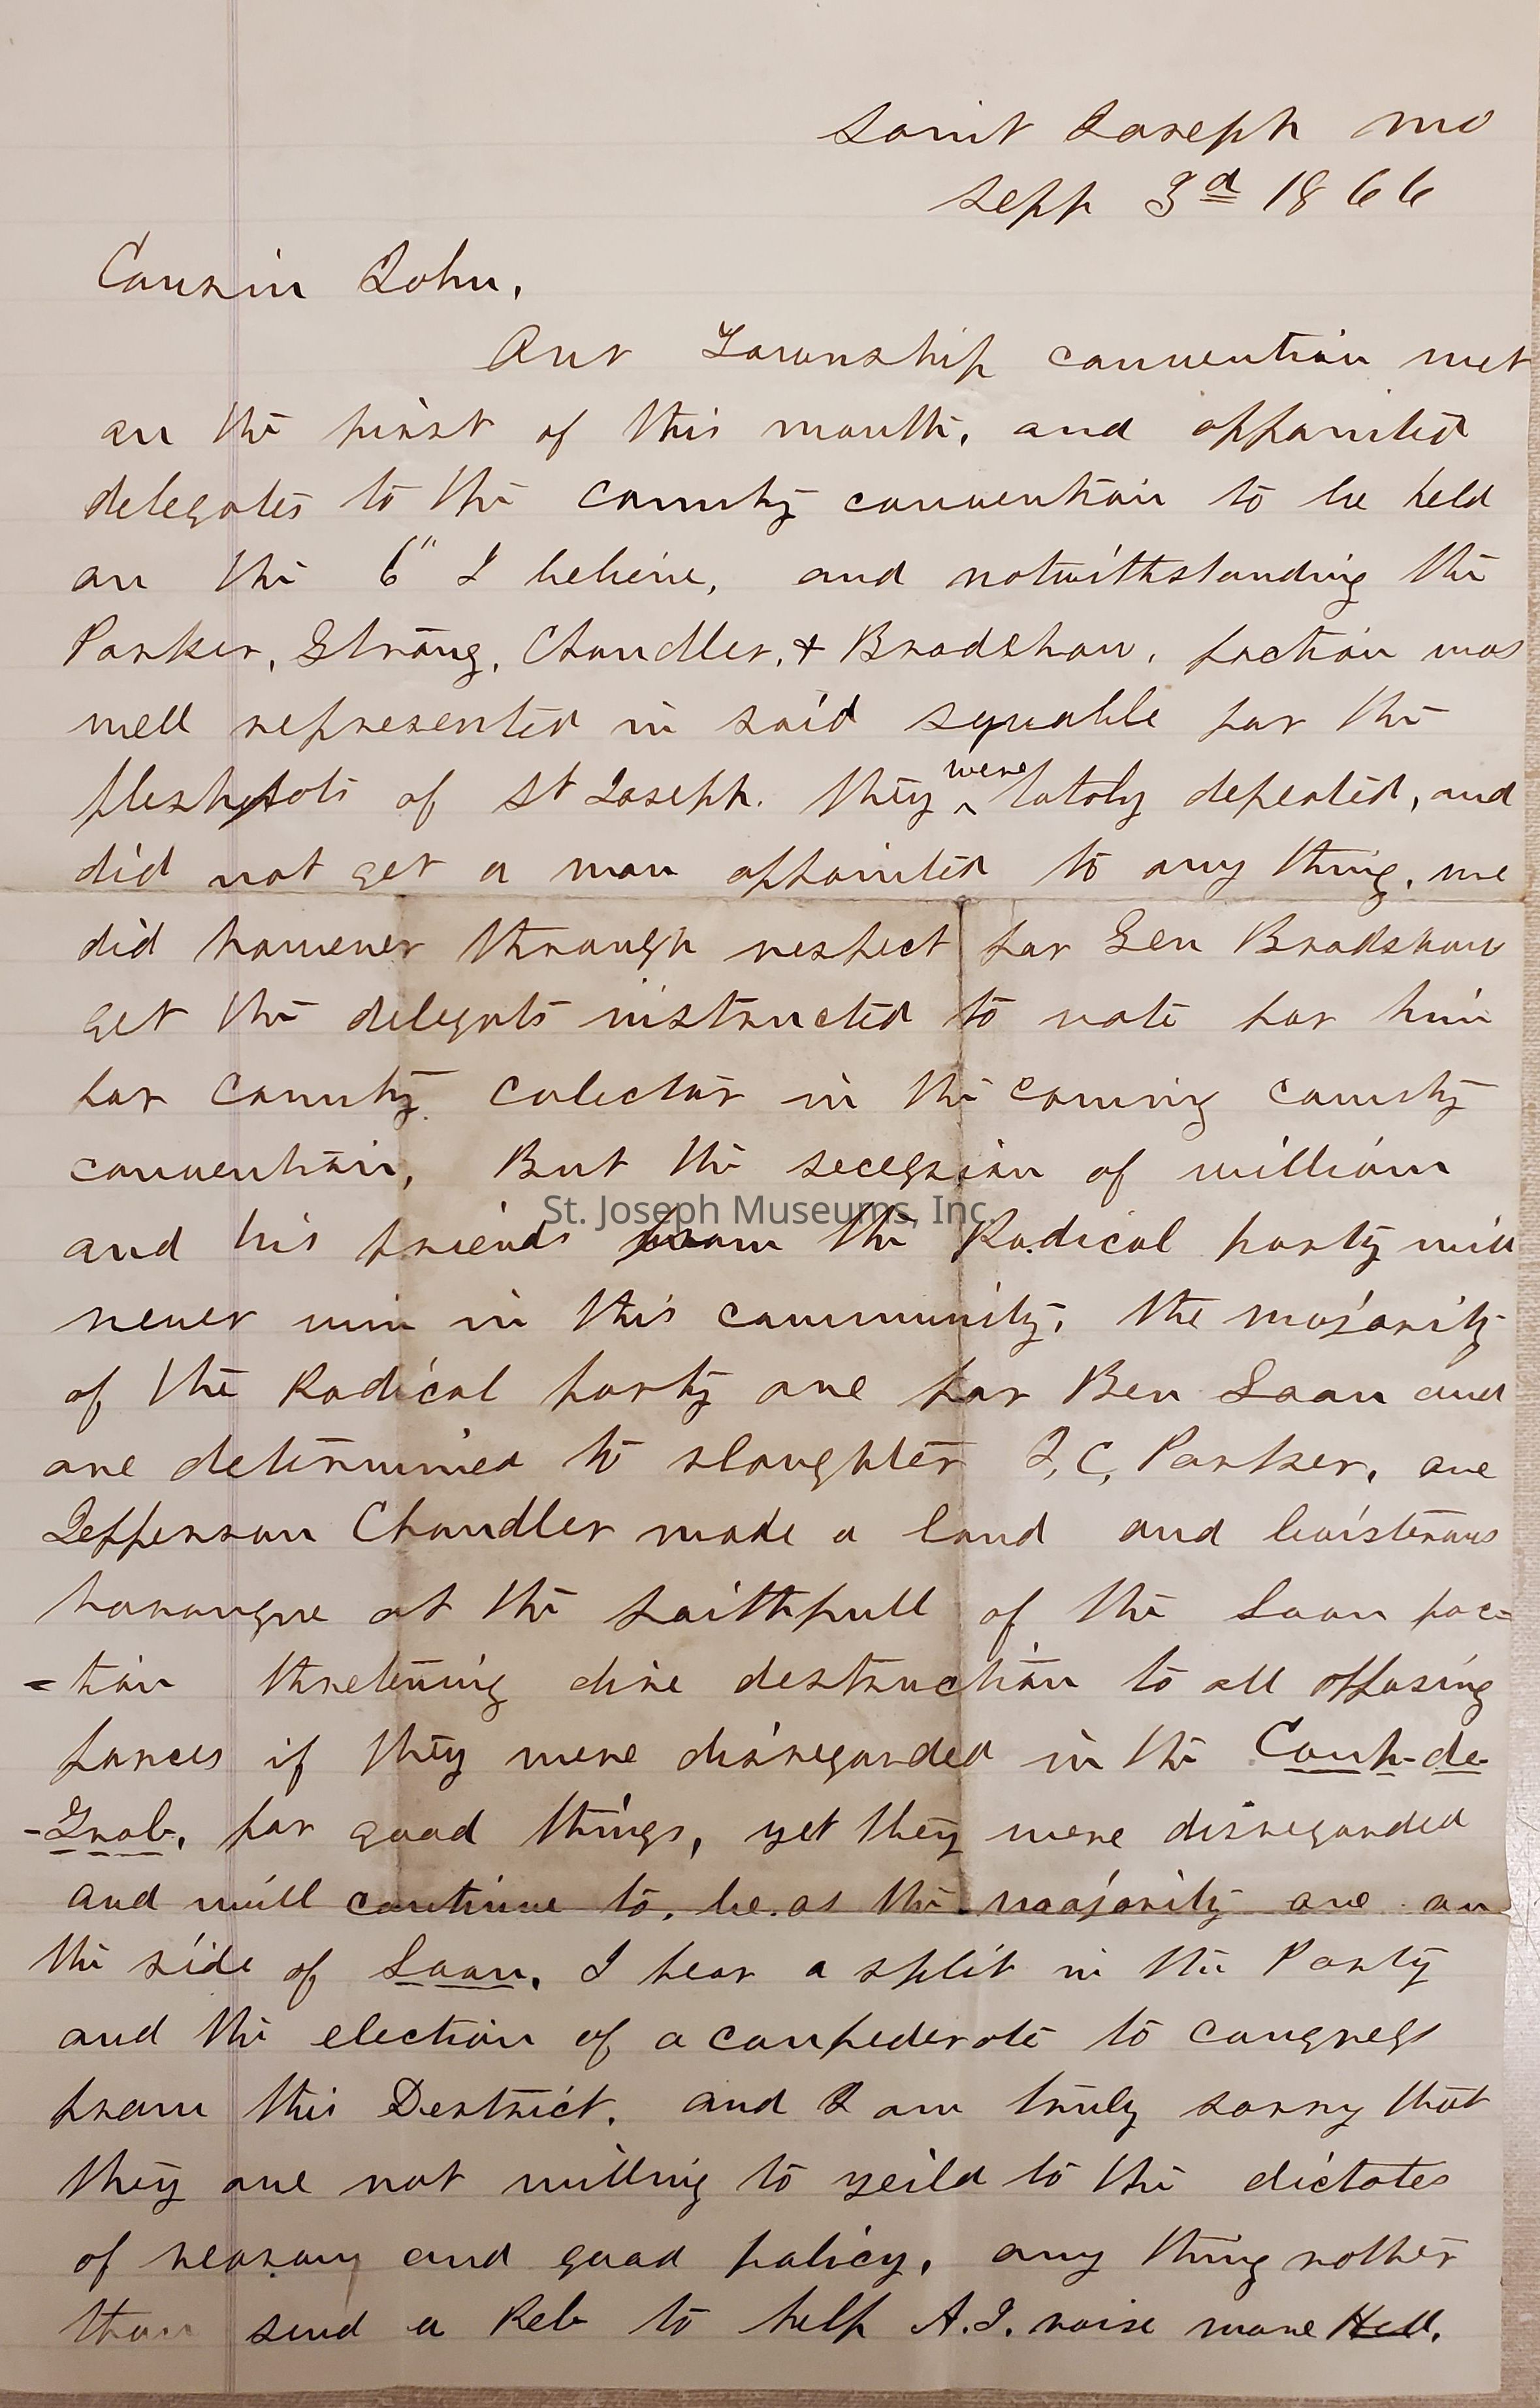 Saint Joseph Mo
Sept 3d 1866
Cousin John,
Our Township convention met
on the first of this month, and appointed
delegates to the County convention to be held
on the 6" I believe, and notwithstanding the
Parker, Strong, Chandler, + Bradshaw, faction was
well represented in said squable for the
fleshpots of St Joseph. they were totaly defeated, and
did not get a man appointed to any thing, we
did however through respect for Gen Bradshaw
get the delegats instructed to vote for him
for County Colector in the coming county
convention, But the secession of william
and his friends from the Radical party will
never win in this community, the majority
of the Radical party are for Ben Loan and
are determined to slaughter I, C, Parker, one
Jefferson Chandler made a loud and boisterous
harangue at the faithfull of the Loan fac=
=tion thretening dire destruction to all opposing
forces if they were disregarded in the Coup-de-
-Grab, for good things, yet they were disregarded
and will continue to, be as the majority are on
the side of Loan. I fear a split in the Party
and the election of a confederate to congress
from this Destrict. and I am truly sorry that
they are not willing to yeild to the dictates
of reason and good policy, any thing rather
than send a Reb to help A.J. raise more Hell.
St. Joseph Museums, Inc.